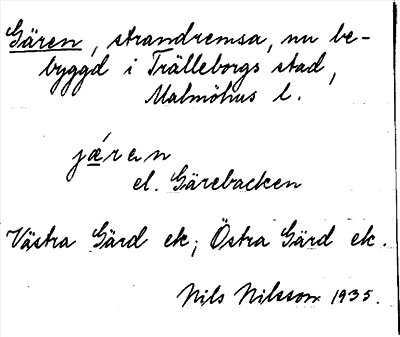 Gären, strandremsa, nu be-
byggd i Trälleborgs stad,
Malmöhus l.
jǽrən
el. Gärebacken
Västra Gärd ek; Östra Gärd ek.
Nils Nilsson 1935.